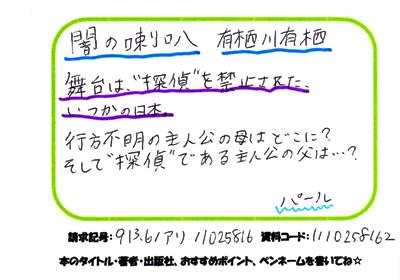 闇の喇叭 有栖川有栖
舞台は、"探偵"を禁止された、
いつかの日本。
行方不明の主人公の母はどこに?
そして"探偵"である主人公の父は…?
パール
請求記号:913.61アリ 11025816 資料コード:1110258162
本のタイトル・著者・出版社、おすすめポイント、ペンネームを書いてね☆